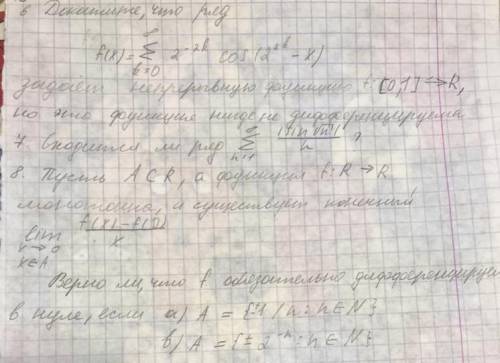 6 Докажите, что ряд
f(x) = ∑_{k=0}^{∞} 2^{-2k} cos(2^{2k} - x)
задаёт непрерывную функцию f: [0,1] → R,
но эта функция нигде не дифференцируема
7. сходится ли ряд ∑_{n=1}^{∞} |sin √n| / n ?
8. Пусть A ⊂ R, а функция f: R → R
монотонна, и существует конечный
lim_{x→0, x∈A} (f(x) - f(0)) / x
Верно ли, что f обязательно дифференцируем
в нуле, если а) A = {±1/n : n ∈ N}
в) A = {± 2^{-n} : n ∈ N}